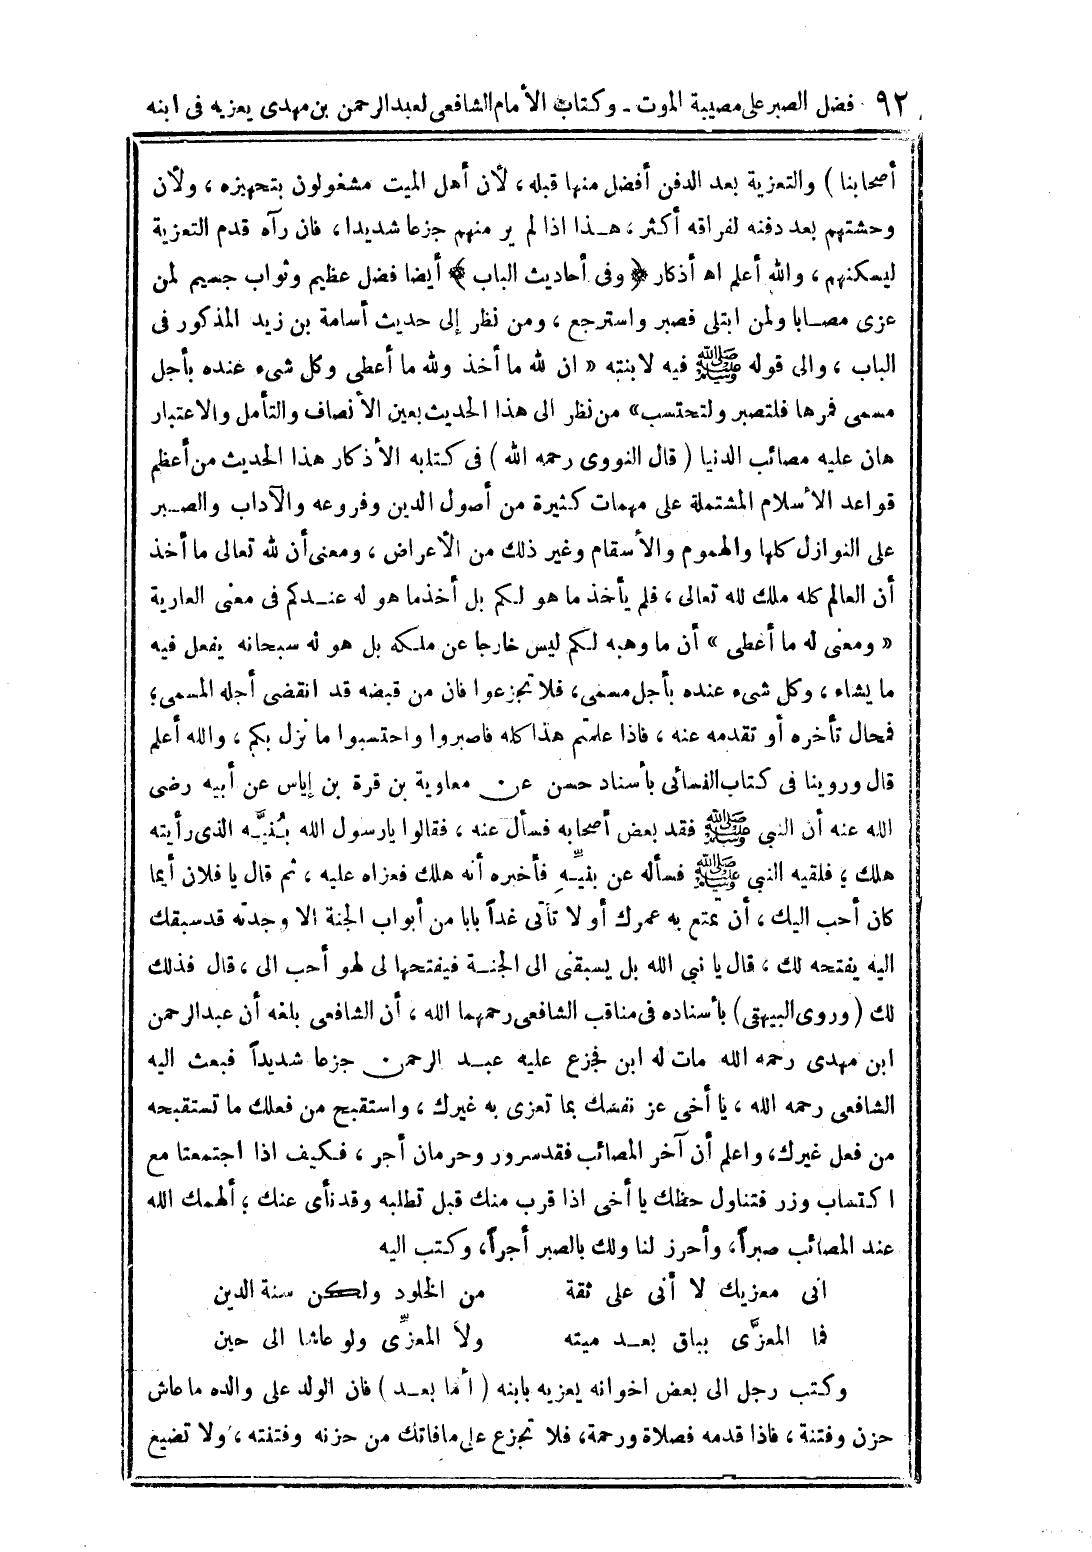 ٩٢ فضل الصبر على مصيبة الموت ـ وكتاب الأمام الشافعى لعبد الرحمن بن مهدى يعزيه فى ابنه
أصحابنا ) والتعزية بعد الدفن أفضل منها قبله ، لأن أهل الميت مشغولون بتجهيزه ، ولأن
وحشتهم بعد دفنه لفراقه أكثر ، هـذا اذا لم ير منهم جزعا شديدا ، فان رآه قدم التعزية
ليسكنهم ، والله أعلم اهـ أذكار ﴿ وفى أحاديث الباب ﴾ أيضا فضل عظيم وثواب جسيم لمن
عزى مصـابا ولمن ابتلى فصبر واسترجع ، ومن نظر إلى حديث أسامة بن زيد المذكور فى
الباب ، والى قوله ﷺ فيه لابنته « ان لله ما أخذ ولله ما أعطى وكل شىء عنده بأجل
مسمى فمرها فلتصبر ولتحتسب» من نظر الى هذا الحديث بعين الأنصاف والتأمل والاعتبار
هان عليه مصائب الدنيا ( قال النووى رحمه الله ) فى كتابه الأذكار هذا الحديث من أعظم
قواعد الأسلام المشتملة على مهمات كثيرة من أصول الدين وفروعه والآداب والصـبر
على النوازل كلها والهموم والأسقام وغير ذلك من الأعراض ، ومعنى أن لله تعالى ما أخذ
أن العالم كله ملك لله تعالى ، فلم يأخذ ما هو لكم بل أخذ ما هو له عنـدكم فى معنى العارية
« ومعنى له ما أعطى » أن ما وهبه لكم ليس خارجا عن ملكه بل هو له سبحانه يفعل فيه
ما يشاء ، وكل شىء عنده بأجل مسمى، فلا تجزعوا فان من قبضه قد انقضى أجله المسمى؛
فمحال تأخره أو تقدمه عنه ، فاذا علمتم هذا كله فاصبروا واحتسبوا ما نزل بكم ، والله أعلم
قال وروينا فى كتاب النسائى بأسناد حسن عن معاوية بن قرة بن إياس عن أبيه رضى
الله عنه أن النبي ﷺ فقد بعض أصحابه فسأل عنه ، فقالوا يارسول الله بُنيَّه الذى رأيته
هلك ؛ فلقيه النبي ﷺ فسأله عن بنيِّهِ فأخبره أنه هلك فعزاه عليه ، ثم قال يا فلان أيما
كان أحب اليك ، أن تمتع به عمرك أو لا تأتى غداً بابا من أبواب الجنة الا وجدته قد سبقك
اليه يفتحه لك ، قال يا نبي الله بل يسبقنى الى الجنـة فيفتحها لى لهو أحب الى ، قال فذلك
لك (وروى البيهقى) بأسناده فى مناقب الشافعى رحمهما الله ، أن الشافعى بلغه أن عبد الرحمن
ابن مهدى رحمه الله مات له ابن فجزع عليه عبـد الرحمن جزعا شديداً فبعث اليه
الشافعى رحمه الله ، يا أخى عز نفسك بما تعزى به غيرك ، واستقبح من فعلك ما تستقبحه
من فعل غيرك، واعلم أن آخر المصائب فقد سرور وحرمان أجر ، فكيف اذا اجتمعتا مع
اكتساب وزر فتناول حظك يا أخى اذا قرب منك قبل تطلبه وقد نأى عنك ؛ ألهمك الله
عند المصائب صبراً، وأحرز لنا ولك بالصبر أجراً، وكتب اليه
انى معزيك لا أنى على ثقة من الخلود ولكن سنة الدين
فما المعزَّى بباق بعـد ميته ولا المعزِّى ولو عاشا الى حين
وكتب رجل الى بعض اخوانه يعزيه بابنه ( أما بعـد ) فان الولد على والده ما عاش
حزن وفتنة ، فاذا قدمه فصلاة ورحمة، فلا تجزع على ما فاتك من حزنه وفتنته ، ولا تضيع